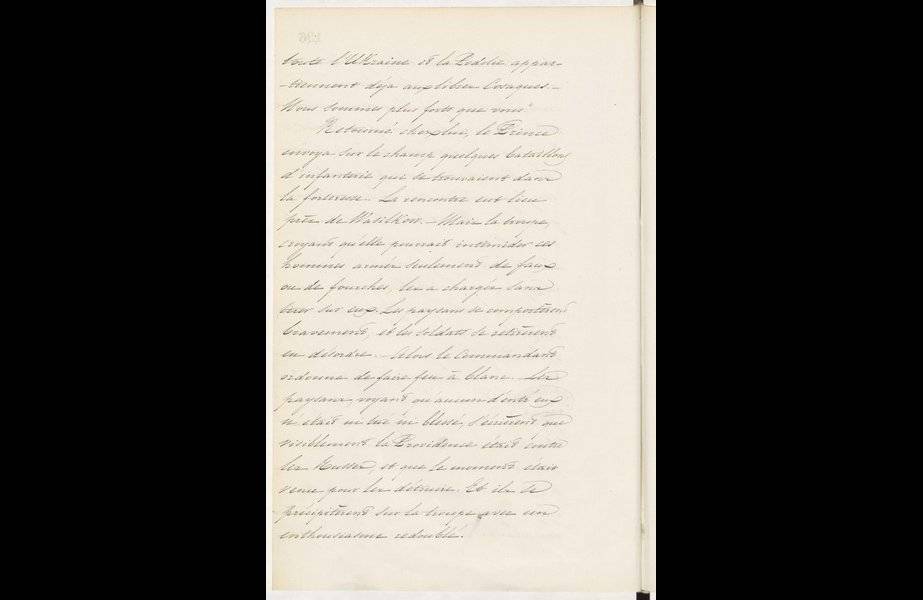 toute l'Ukraine et la Podolie appar-
-tiennent déja aux libres Cosaques.-
Nous sommes plus forts que vous"
Retourné chez lui, le Prince
envoya sur le champ quelques bataillons
d'infanterie que se trouvaient dans
la forteresse. La rencontre eut lieu
près de Wasilkow. - Mais la troupe,
croyant qu'elle pourrait intimider ces
hommes armés seulement de faux
ou de fourches, les a chargés sans
tirer sur eux. Les paysans se comportèrent
bravement, et les soldats se retirèrent
en désordre. - Alors le Commandant
ordonna de faire feu à blanc. Les
paysans, voyant qu'aucun d'entr'eux
n'était ni tué ni blessé, s'écrièrent que
visiblement la Providence était contre
les Russes, et que le moment était
venu pour les détruire. Et ils se
précipitèrent sur la troupe avec un
enthousiasme redoublé.